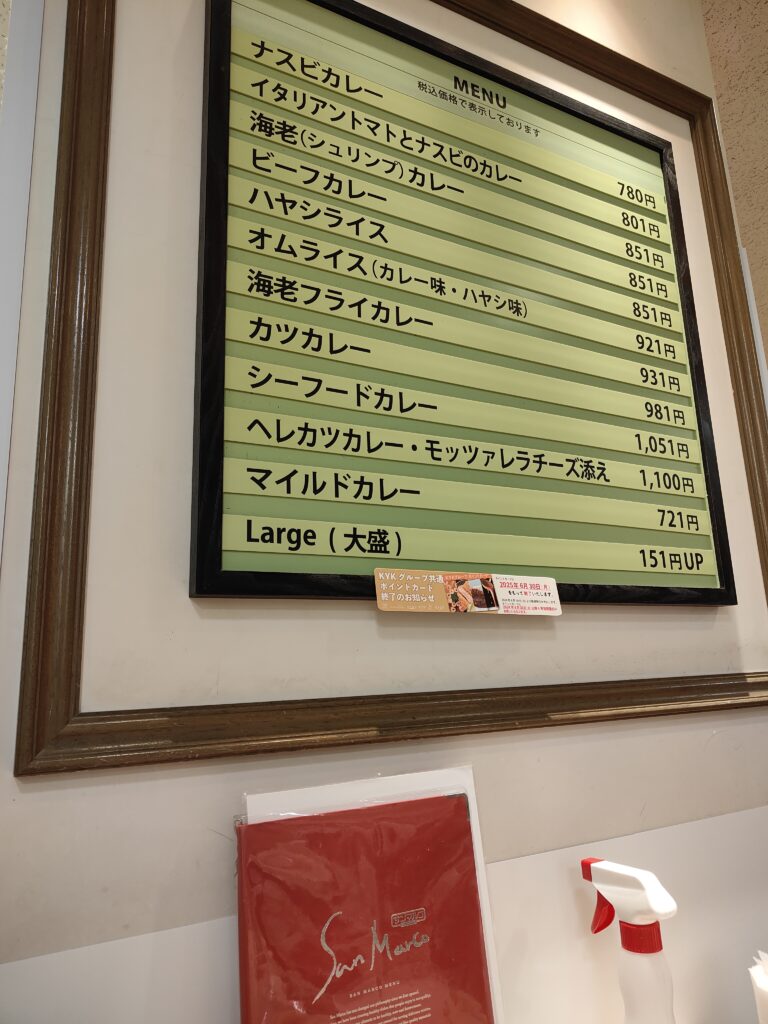 MENU
税込価格で表示しております
ナスビカレー 780円
イタリアントマトとナスビのカレー 801円
海老(シュリンプ)カレー 851円
ビーフカレー 851円
ハヤシライス 851円
オムライス(カレー味・ハヤシ味) 921円
海老フライカレー 931円
カツカレー 981円
シーフードカレー 1,051円
ヘレカツカレー・モッツァレラチーズ添え 1,100円
マイルドカレー 721円
Large (大盛) 151円UP
KYKグループ共通
ポイントカード
終了のお知らせ
2025年6月30日(月)
をもって終了いたします。
San Marco
SAN MARCO MENU